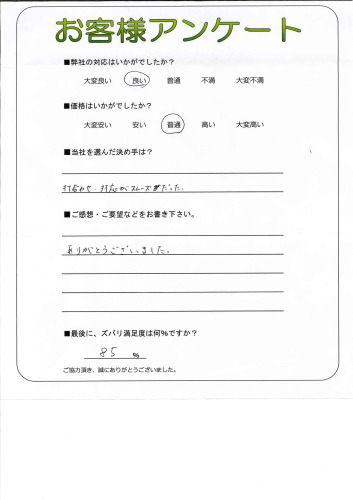 お客様アンケート
■弊社の対応はいかがでしたか?
大変良い 良い 普通 不満 大変不満
■価格はいかがでしたか?
大変安い 安い 普通 高い 大変高い
■当社を選んだ決め手は?
打合わせ・対応がスムーズだった。
■ご感想・ご要望などをお書き下さい。
ありがとうございました。
■最後に、ズバリ満足度は何%ですか?
85 %
ご協力頂き、誠にありがとうございました。